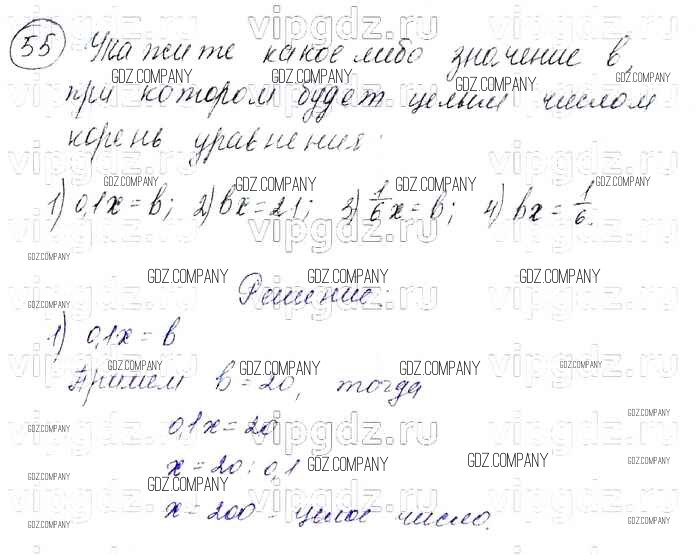 55 Укажите какое либо значение b,
при котором будет целым числом
корень уравнения:
1) 0,1x = b; 2) bx = 21; 3) 1/6 x = b; 4) bx = 1/6.
Решение:
1) 0,1x = b
Примем b = 20, тогда
0,1x = 20
x = 20 : 0,1
x = 200 - целое число.
vipgdz.ru
GDZ.COMPANY